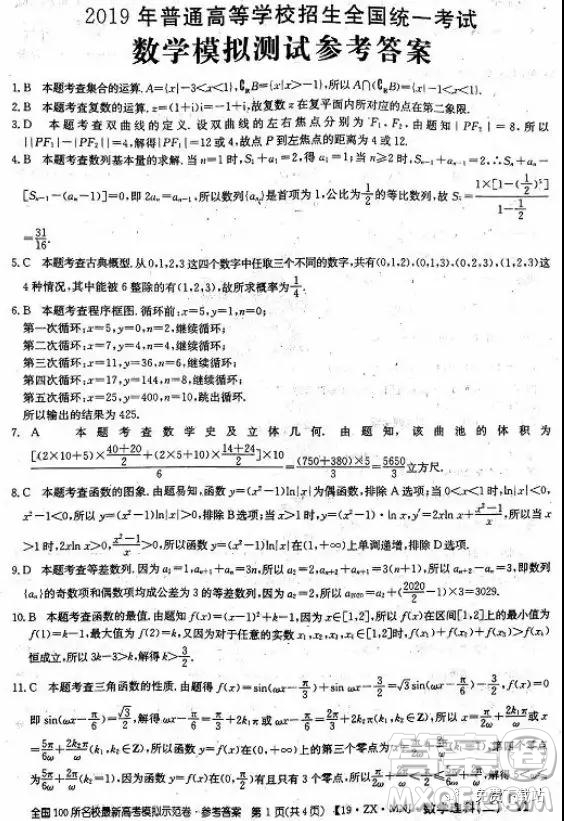 2019年普通高等学校招生全国统一考试
数学模拟测试参考答案
1. B 本题考查集合的运算. A={x|-3<x<1}, ∁RB={x|x>-1}, 所以A∩(∁RB)={x|-1<x<1}.
2. B 本题考查复数的运算. z=(1+i)i=-1+i, 故复数z在复平面内所对应的点在第二象限.
3. D 本题考查双曲线的定义. 设双曲线的左右焦点分别为F₁, F₂, 由题知|PF₂|=8, 所以
||PF₁|-|PF₂||=4, 解得|PF₁|=12或4, 故点P到左焦点的距离为4或12.
4. B 本题考查数列基本量的求解. 当n=1时, S₁+a₁=2, 得a₁=1; 当n≥2时, Sₙ₋₁+aₙ₋₁=2, ∴Sₙ+aₙ-
[Sₙ₋₁-(aₙ-1)]=0, 即2aₙ=aₙ₋₁, 所以数列{aₙ}是首项为1, 公比为1/2的等比数列, 故S₅=1×[1-(1/2)⁵]/(1-1/2)
=31/16.
5. C 本题考查古典概型. 从0,1,2,3这四个数字中任取三个不同的数字, 共有(0,1,2),(0,1,3),(0,2,3),(1,2,3)这
4种情况, 其中能被6整除的有(1,2,3), 故所求概率为1/4.
6. B 本题考查程序框图. 循环前: x=5, y=1, n=0;
第一次循环: x=5, y=0, n=2, 继续循环;
第二次循环: x=7, y=4, n=4, 继续循环;
第三次循环: x=11, y=36, n=6, 继续循环;
第四次循环: x=17, y=144, n=8, 继续循环;
第五次循环: x=25, y=400, n=10, 跳出循环.
所以输出的结果为425.
7. A 本题考查数学史及立体几何. 由题知, 该曲池的体积为
[(2×10+5)×(40+20)/2+(2×5+10)×(14+24)/2]×10/6=(750+380)×5/3=5650/3立方尺.
8. C 本题考查函数的图象. 由题易知, 函数y=(x²-1)ln|x|为偶函数, 排除A选项; 当0<x<1时, ln|x|<0,
x²-1<0, 所以y=(x²-1)ln|x|>0, 排除B选项; 当x>1时, y=(x²-1)·ln x, y′=2xln x+(x²-1)/x, 所以当x
>1时, 2xln x>0, (x²-1)/x>0, 所以函数y=(x²-1)ln|x|在(1,+∞)上单调递增, 排除D选项.
9. D 本题考查等差数列. 因为a₂=1, aₙ₊₁+aₙ=3n, 所以a₂=2, aₙ₊₂+aₙ₊₁=3(n+1), 所以aₙ₊₂-aₙ=3, 即数列
{aₙ}的奇数项和偶数项均成公差为3的等差数列, 因为a₂=2, 所以a₂₀₂₀=a₂+(2020/2-1)×3=3029.
10. B 本题考查函数的最值. 由题知f(x)=(x-1)²+k-1, 因为x∈[1,2], 所以f(x)在区间[1,2]上的最小值为
f(1)=k-1, 最大值为f(2)=k, 又因为对于任意的实数x₁,x₂,x₃∈[1,2], 都有f(x₁)+f(x₂)>f(x₃)
恒成立, 所以3k-3>k, 解得k>3/2.
11. C 本题考查三角函数的性质. 由题得f(x)=sin(ωx-π/3)+sin ωx-3/2=√3sin(ωx-π/6)-3/2=0
即sin(ωx-π/6)=√3/2, 解得ωx-π/6=π/3+2k₁π或ωx-π/6=2π/3+2k₂π(k₁,k₂∈Z), 所以x=π/2ω+2k₁π/ω或x
=5π/6ω+2k₂π/ω(k₁,k₂∈Z), 所以函数f(x)在(0,+∞)上的第三个零点为
为
全国100所名校最新高考模拟示范卷·参考答案 第1页(共4页) 【19·ZX·MNJ·数学
免费下载站